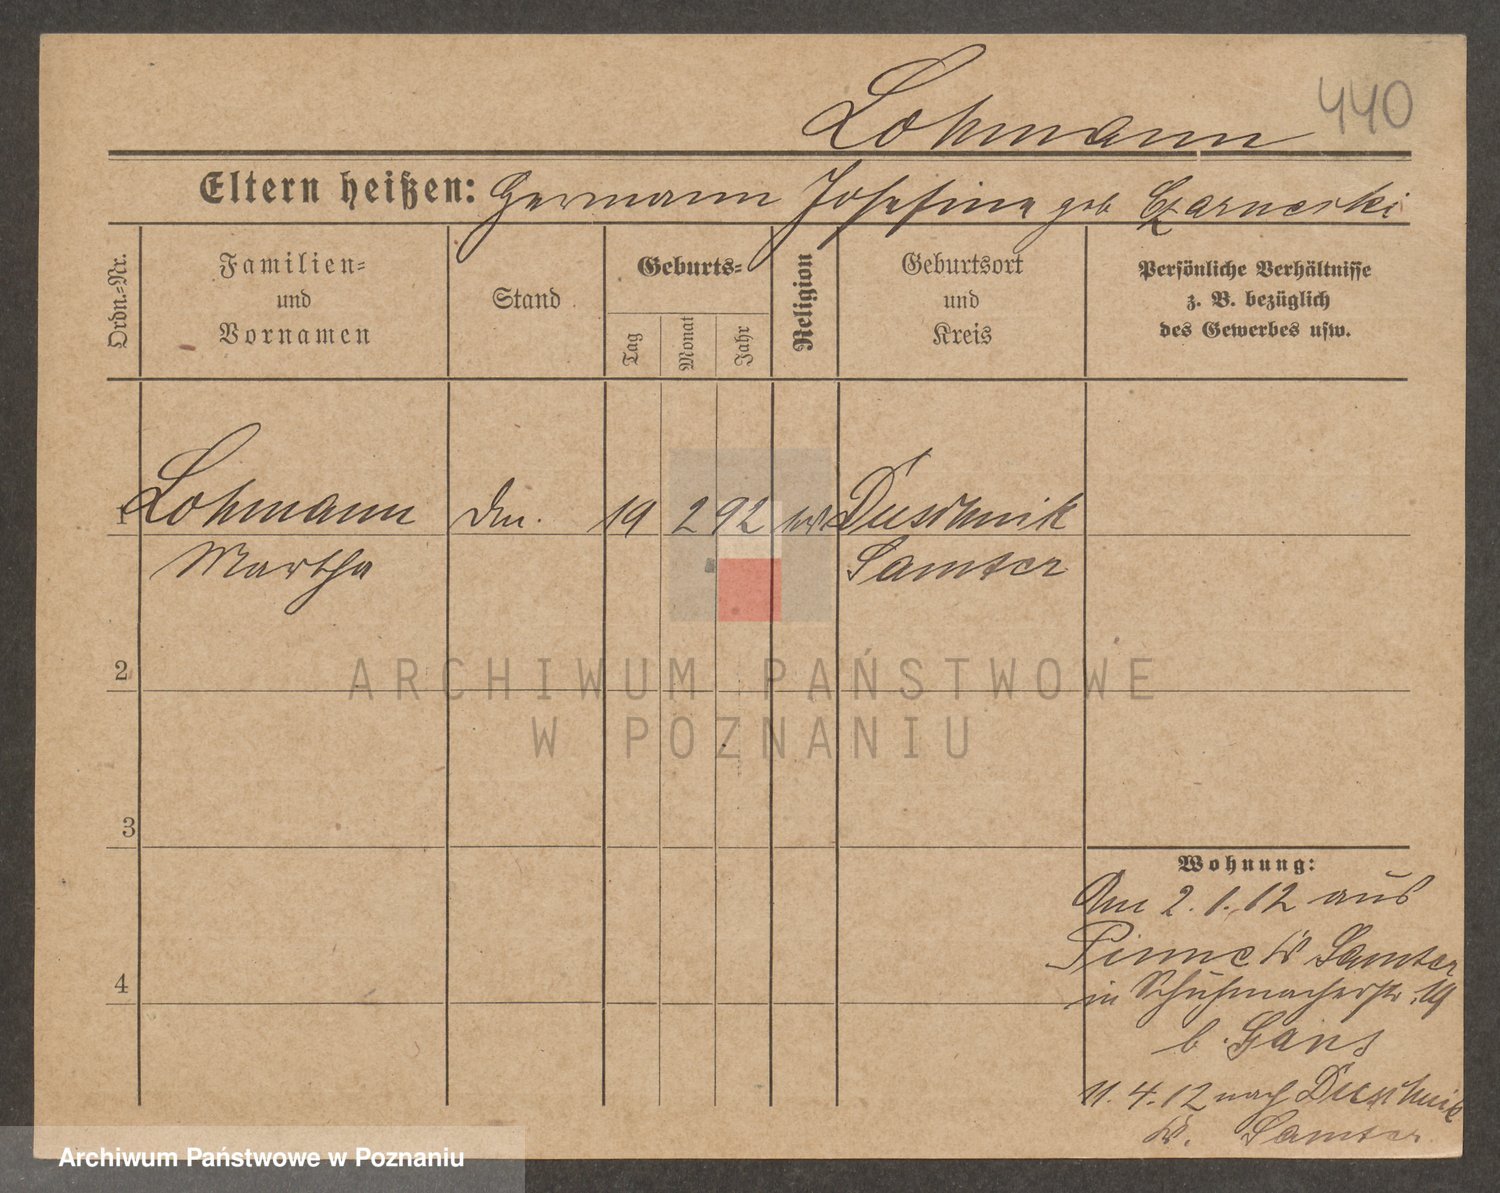 440
Lohmann
Eltern heißen: Hermann Josefine geb Czarnecki
Ordn.=Nr.
Familien=
und
Vornamen
Stand
Geburts=
Tag
Monat
Jahr
Religion
Geburtsort
und
Kreis
Persönliche Verhältnisse
z. B. bezüglich
des Gewerbes usw.
1 Lohmann 19 2 92 Duschnik
Martha Samter
2
3
4
Wohnung:
2.1.12 aus
Pinne Kr Samter
in Schuhmacherstr. 19
b. Gans
11.4.12 nach Duschnik
Kr. Samter
ARCHIWUM PAŃSTWOWE
W POZNANIU
Archiwum Państwowe w Poznaniu